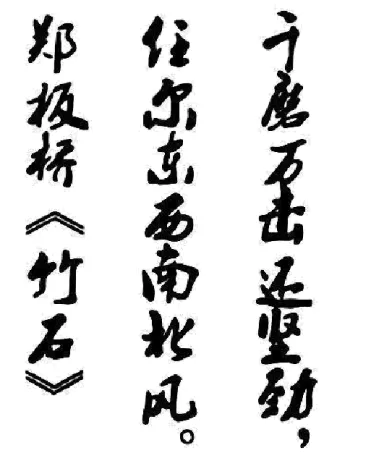 千磨万击还坚劲，
任尔东西南北风。
郑板桥《竹石》